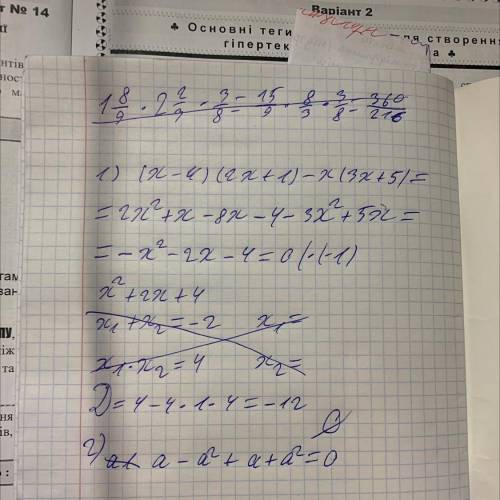 т № 14
Варіант 2
♣ Основні теги
ля створення
гіпертек
а ♣
1 8/9 · 2 2/9 · 3/8 = 15/9 · 8/3 · 3/8 = 360/216
1) (x-4)(2x+1)-x(3x+5)=
=2x²+x-8x-4-3x²+5x=
=-x²-2x-4=0 (·(-1)
x²+2x+4
x₁+x₂=-2 x₁=
x₁·x₂=4 x₂=
D=4-4·1·4=-12
2) a - a² + a + a² = 0